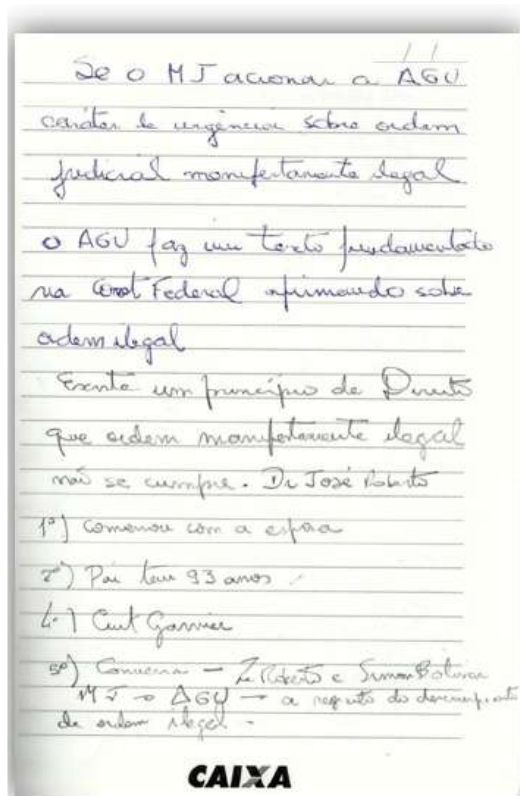 / /
Se o MJ acionar a AGU
caráter de urgência sobre ordem
judicial manifestamente ilegal
o AGU faz um texto fundamentado
na Const Federal afirmando sobre
ordem ilegal
Existe um princípio de Direito
que ordem manifestamente ilegal
não se cumpre. Dr José Roberto
1º) Comemou com a esposa
2º) Pai tem 93 anos
4.) Garnier
5º) Conversa - Zé Roberto e Simon Bolivar
MJ → AGU → a respeito do
de ordem ilegal -
CAIXA